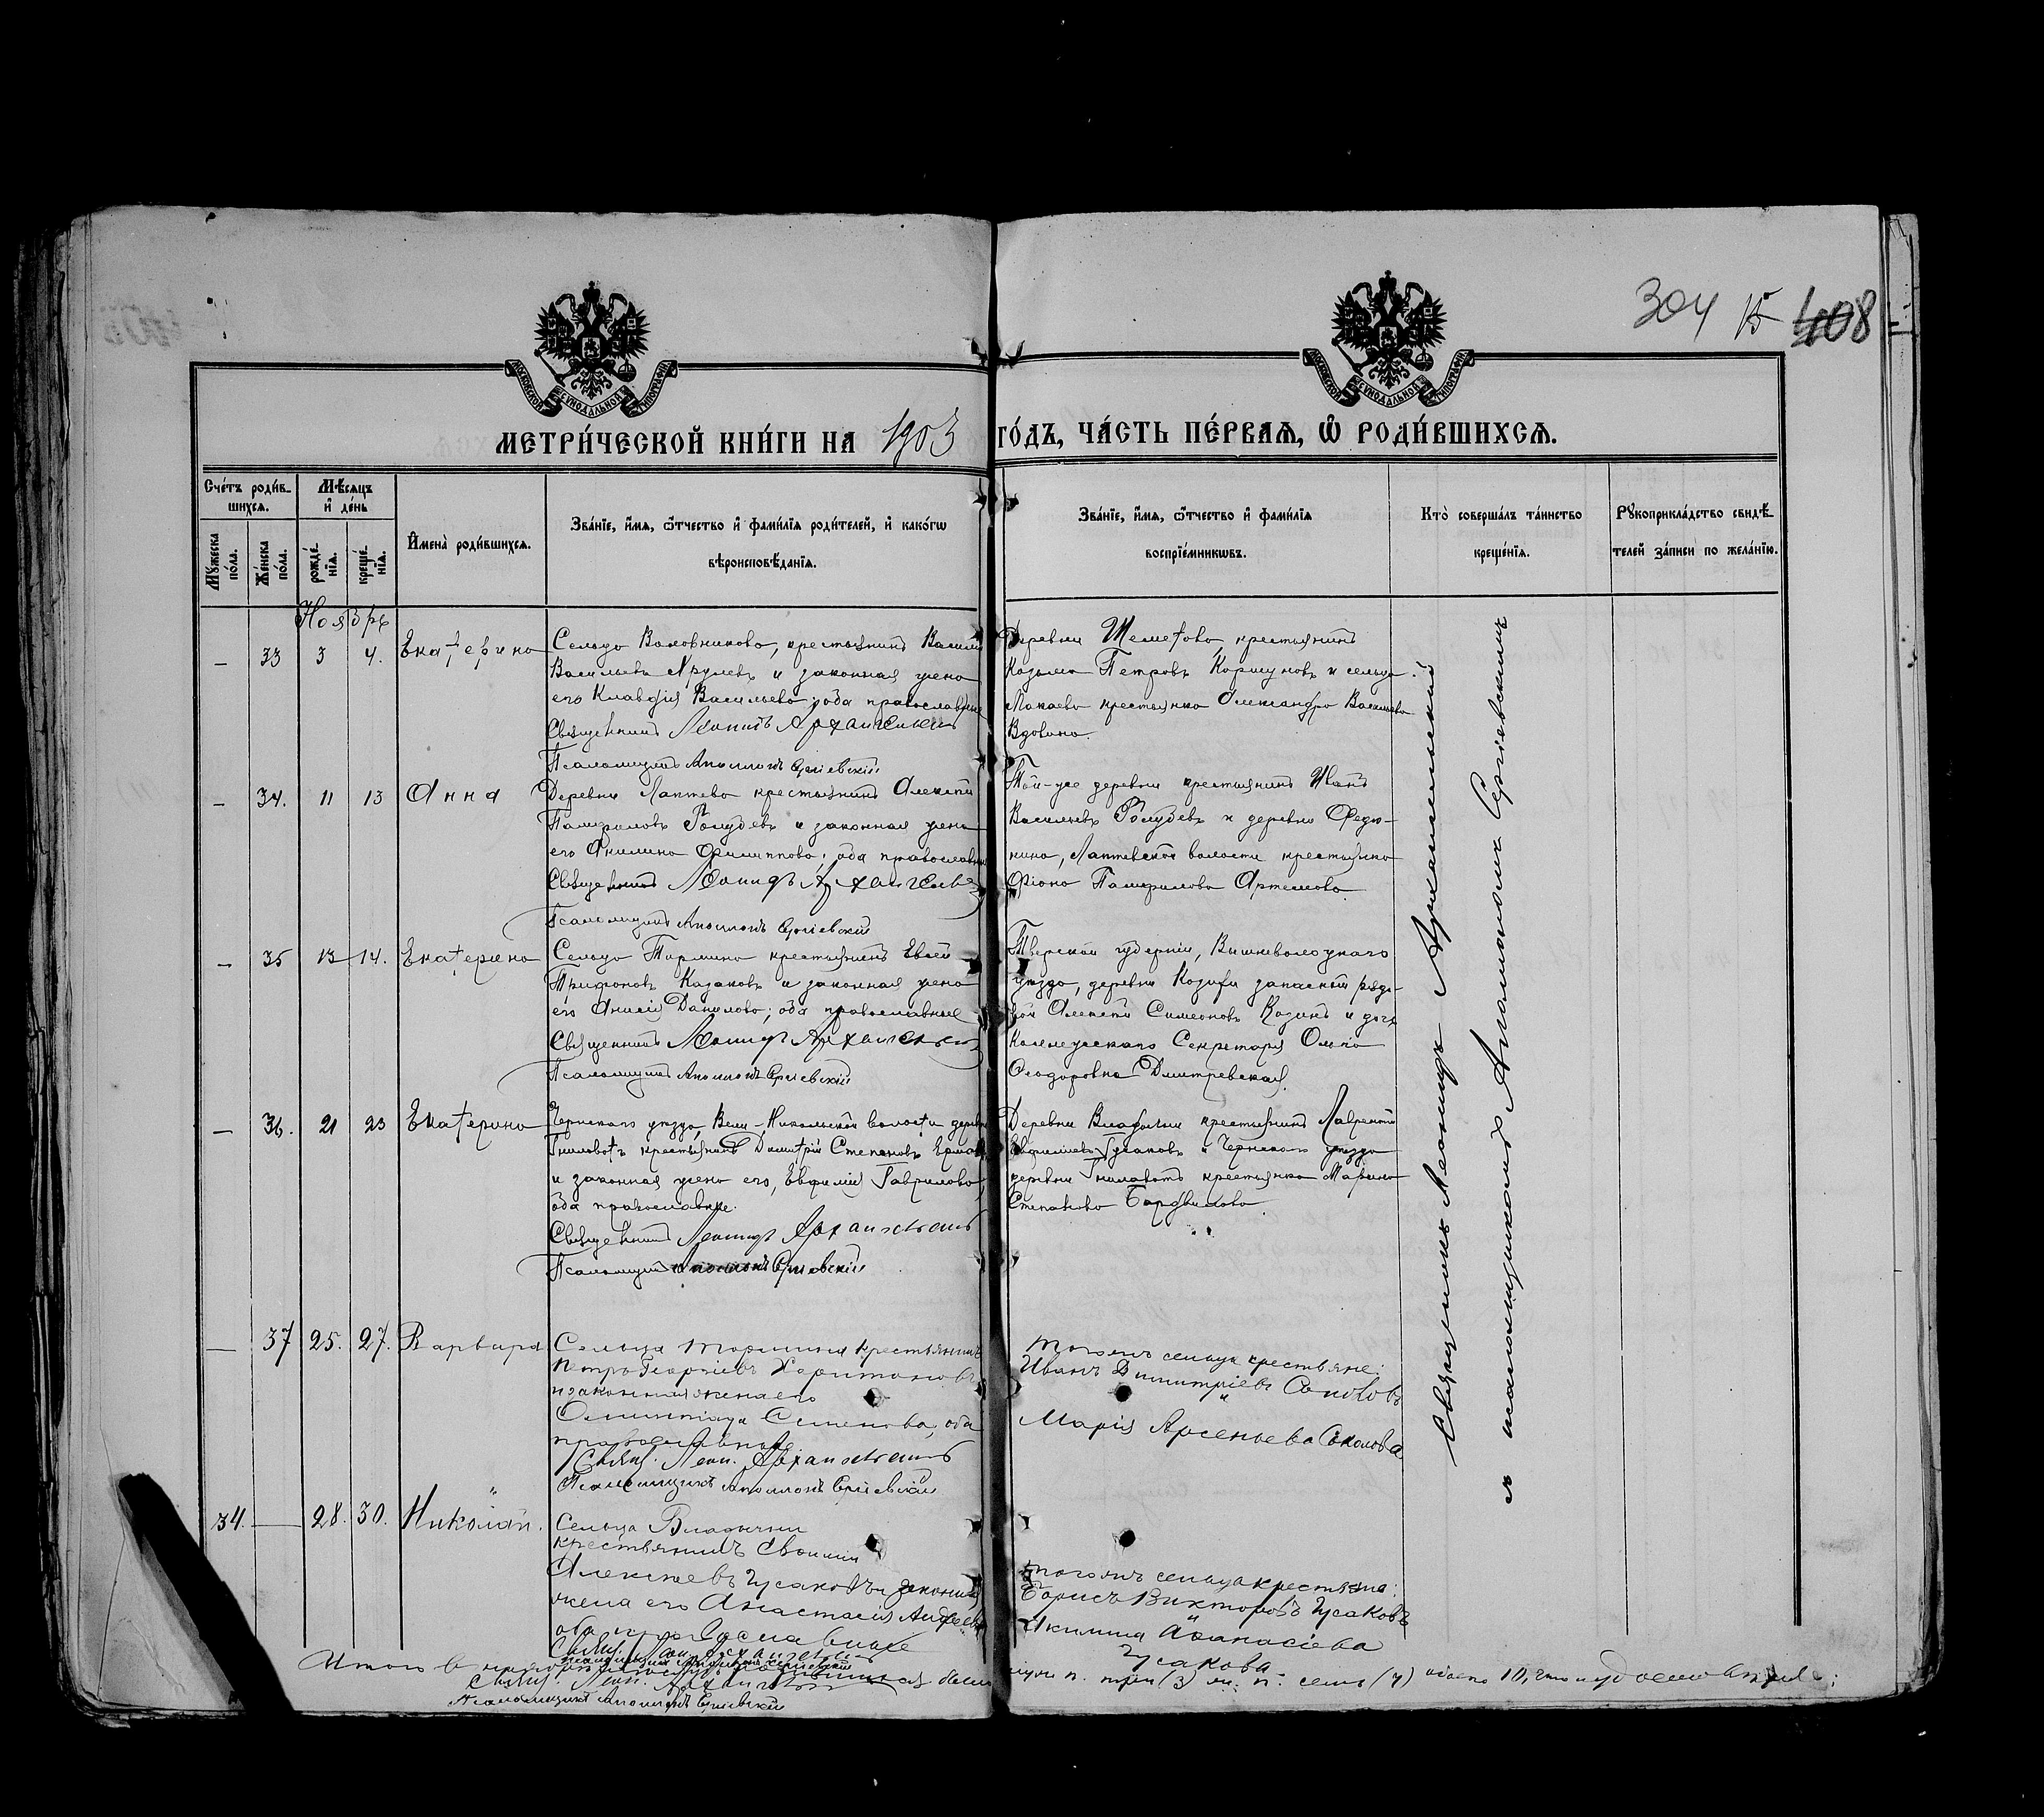 304 15 408
МОСКОВСКОЙ СУНОДАЛЬНОЙ ТИПОГРАФІИ
МОСКОВСКОЙ СУНОДАЛЬНОЙ ТИПОГРАФІИ
МЕТРИ́ЧЕСКОЙ КНИ́ГИ НА 1903 ГО́ДЪ, ЧА́СТЬ ПЕ́РВАѦ, Ѽ РОДИ́ВШИХСѦ.
Сче́тъ роди́в-
шихсѧ.
Мꙋ́жеска по́ла.
Же́нска по́ла.
Мѣ́сѧцъ
и҆ де́нь
рожде́-
нїѧ.
креще́-
нїѧ.
И҆мена̀ роди́вшихсѧ.
Зва́нїе, и҆́мѧ, ѻ҆́тчество и҆ фами́лїѧ роди́телей, и҆ како́гѡ
вѣроисповѣ́данїѧ.
Зва́нїе, и҆́мѧ, ѻ҆́тчество и҆ фами́лїѧ
воспрїе́мникѡвъ.
Кто̀ соверша́лъ та́инство
креще́нїѧ.
Рꙋкоприкла́дство свидѣ́-
телей за́писи по жела́нїю.
Ноябрь
– 33 3 4. Екатерина
Сельца крестьянинъ Василій
Васильевъ и законная жена
его Клавдія Васильева; оба православные
Священникъ Леонидъ Архангельскій
Псаломщикъ Аполлонъ Сергіевскій
Деревни Шеметова, крестьянинъ
Козьма Петровъ Коршуновъ и сельца
Мокаева крестьянка Александра Васильева
Вдовина.
– 34. 11 13 Анна
Деревни Лаптева крестьянинъ Алексѣй
Памфиловъ Голубевъ и законная жена
его Акилина Филиппова; оба православные
Священникъ Леонидъ Архангельскій
Псаломщикъ Аполлонъ Сергіевскій
Той-же деревни крестьянинъ Иванъ
Васильевъ Голубевъ и деревни Федю-
кина, Лаптевской волости крестьянка
Фіона Памфилова Артемова
– 35 13 14. Екатерина
Сельца Тормина крестьянинъ Евсей
Трифоновъ Казаковъ и законная жена
его Анисія Данилова; оба православные
Священникъ Леонидъ Архангельскій
Псаломщикъ Аполлонъ Сергіевскій
Тверской губерніи, Вышневолоцкаго
уѣзда, деревни запасной рядо-
вой Алексѣй Симеоновъ Козинъ и дочь
Коллежскаго Секретаря Ольга
Ѳеодоровна Дмитревская.
– 36. 21 23 Екатерина
Чернскаго уѣзда, Велье-Никольской волости дерев
крестьянинъ Димитрій Степановъ
и законная жена его, Евфимія Гаврилова
оба православные.
Священникъ Леонидъ Архангельскій
Псаломщикъ Аполлонъ Сергіевскій
Деревни Владычни крестьянинъ Лаврентій
Евфиміевъ Гусаковъ и Чернскаго уѣзда
деревни крестьянка Марина
Степанова Бардвилова.
– 37 25. 27. Варвара
Сельца Тормина крестьянинъ
Петръ Георгіевъ Харитоновъ
и законная жена его
Олимпіада Семенова, оба
православные
Свящ. Леон. Архангельскій
Псаломщикъ Аполлонъ Сергіевскій
Тогожъ сельца крестьяне:
Иванъ Димитріевъ Соколовъ
Марія Арсеньева Соколова
34. – 28. 30. Николай.
Сельца Владычни
крестьянинъ
Алексѣевъ Гусаковъ и законная
жена его Анастасія Андреева
оба православные
Свящ. Леон. Архангельскій
Псаломщикъ Аполлонъ Сергіевскій
тогожъ сельца крестьяне:
Борисъ Викторовъ Гусаковъ
Акилина Аѳанасіева
Гусакова
Итого в муж. п. три (3) ж. п. семь (7) обоего 10, что и удостовѣряемъ:
Свящ. Леон. Архангельскій
Псаломщикъ Аполлонъ Сергіевскій
Священникъ Леонидъ Архангельскій
съ псаломщикомъ Аполлономъ Сергіевскимъ